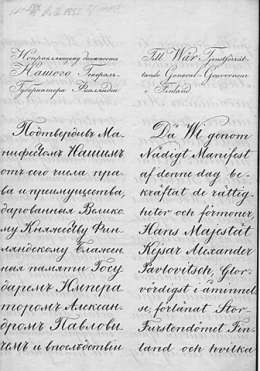 Исправляющему должность
Нашего Генерал-
Губернатора Финляндіи
Подтвердивъ Ма-
нифестомъ Нашимъ
отъ сего числа пра-
ва и преимущества,
дарованныя Велико-
му Княжеству Фин-
ляндскому блажен-
ныя памяти Госу-
даремъ Импера-
торомъ Алексан-
дромъ Павлови-
чемъ и впослѣдствіи
Till Wår Tjenstförrät-
tande General-Guvernören
i Finland
Då Wi genom
Nådigt Manifest
af denne dag be-
kräftat de rättig-
heter och förmoner,
Hans Majestät
Kejsar Alexander
Pavlovitsch, Glor-
vördigst i åminnel-
se, förlänat Stor-
Furstendömet Fin-
land och hvilka